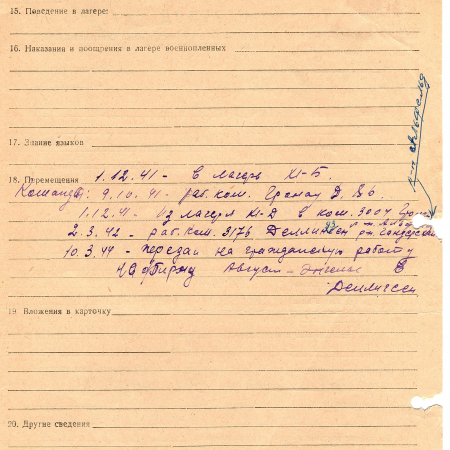 15. Поведение в лагере:
16. Наказания и поощрения в лагере военнопленных
17. Знание языков
18. Перемещения 1.12.41 - в лагерь XI-Б.
Команды: 9.10.41 - раб. ком. Гронау
1.12.41 - Из лагеря XI-Д в ком. 3004
2.3.42 - раб. ком. 3176 Деллиген
10.3.44 - передан на гражданскую работу
на фирму Август - Энгельс в
Деллигсен
19 Вложения в карточку
20. Другие сведения